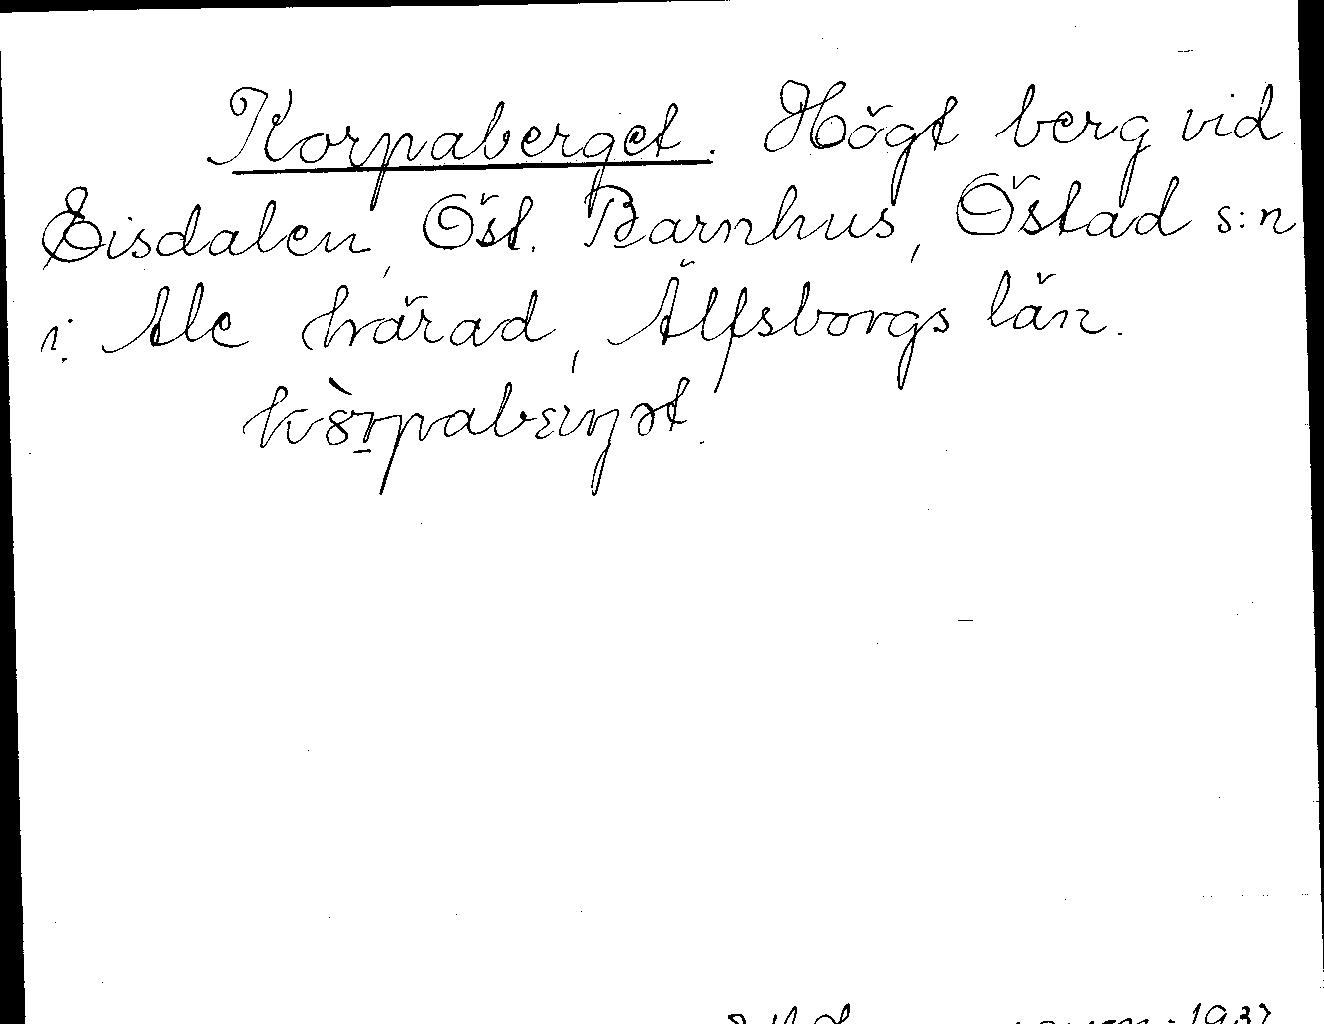 Korpaberget. Högt berg vid
Eisdalen, Öst. Barnhus, Östad s:n
i. Ale härad, Älfsborgs län.
kòrpabærjət.
1937